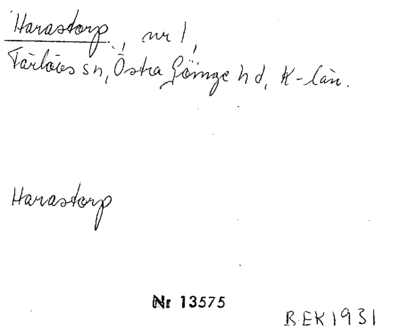 Harastorp, nr 1,
Färlövs sn, Östra Göinge hd, K-län.
Harastorp
Nr 13575
B.EK 1931